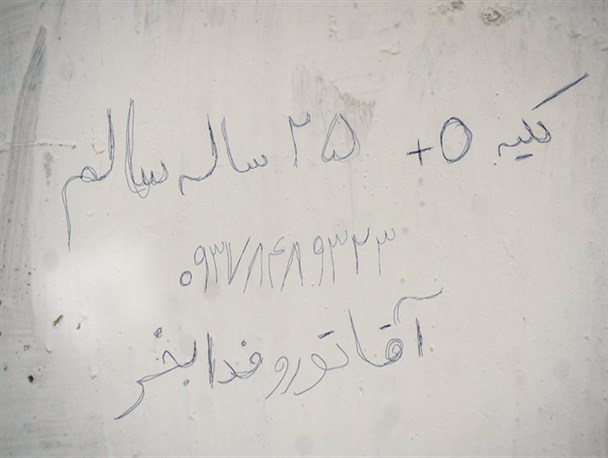 کلیه O+ ۲۵ ساله سالم
۰۹۳۷۸۴۸۹۳۲۳
آقا تورو خدا بخر